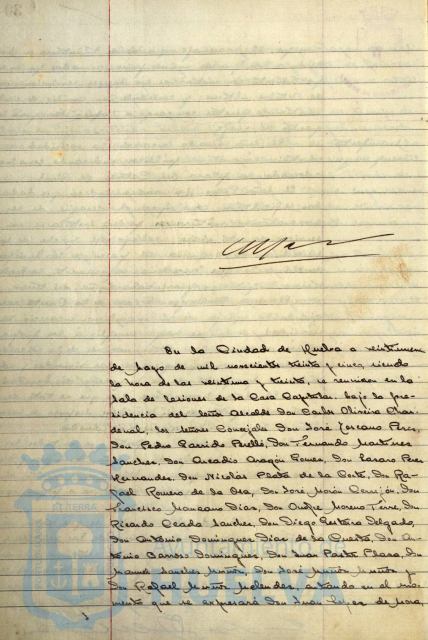 En la Ciudad de Huelva a veintinueve
de Mayo de mil novecientos treinta y cinco, siendo
la hora de las veintiuna y treinta, se reunieron en la
Sala de Sesiones de la Casa Capitular, bajo la pre-
sidencia del Señor Alcalde Don Carlos Oliveira Chardenal, los señores Concejales Don José Toscano Perez,
Don Pedro Garrido Perelló, Don Fernando Martinez
Sanchez, Don Arcadio Aragón Gomez, Don Lazaro Perez
Hernandez, Don Nicolas Plata de la Corte, Don Ra-
fael Romero de la Osa, Don José Morón Cerrejón, Don
Francisco Manzano Diaz, Don Andres Moreno Terre, Don
Ricardo Ceada Sanchez, Don Diego Delgado,
Don Antonio Dominguez Diaz de la Cuesta, Don An-
tonio Barroso Dominguez, Don Juan Plaza, Don
Manuel Sanchez Don José Muñoz Muñoz y
Don Rafael Muñoz Melendez, entrando en el mo-
mento que se expresará Don Juan Lopez de Mora,
HUELVA